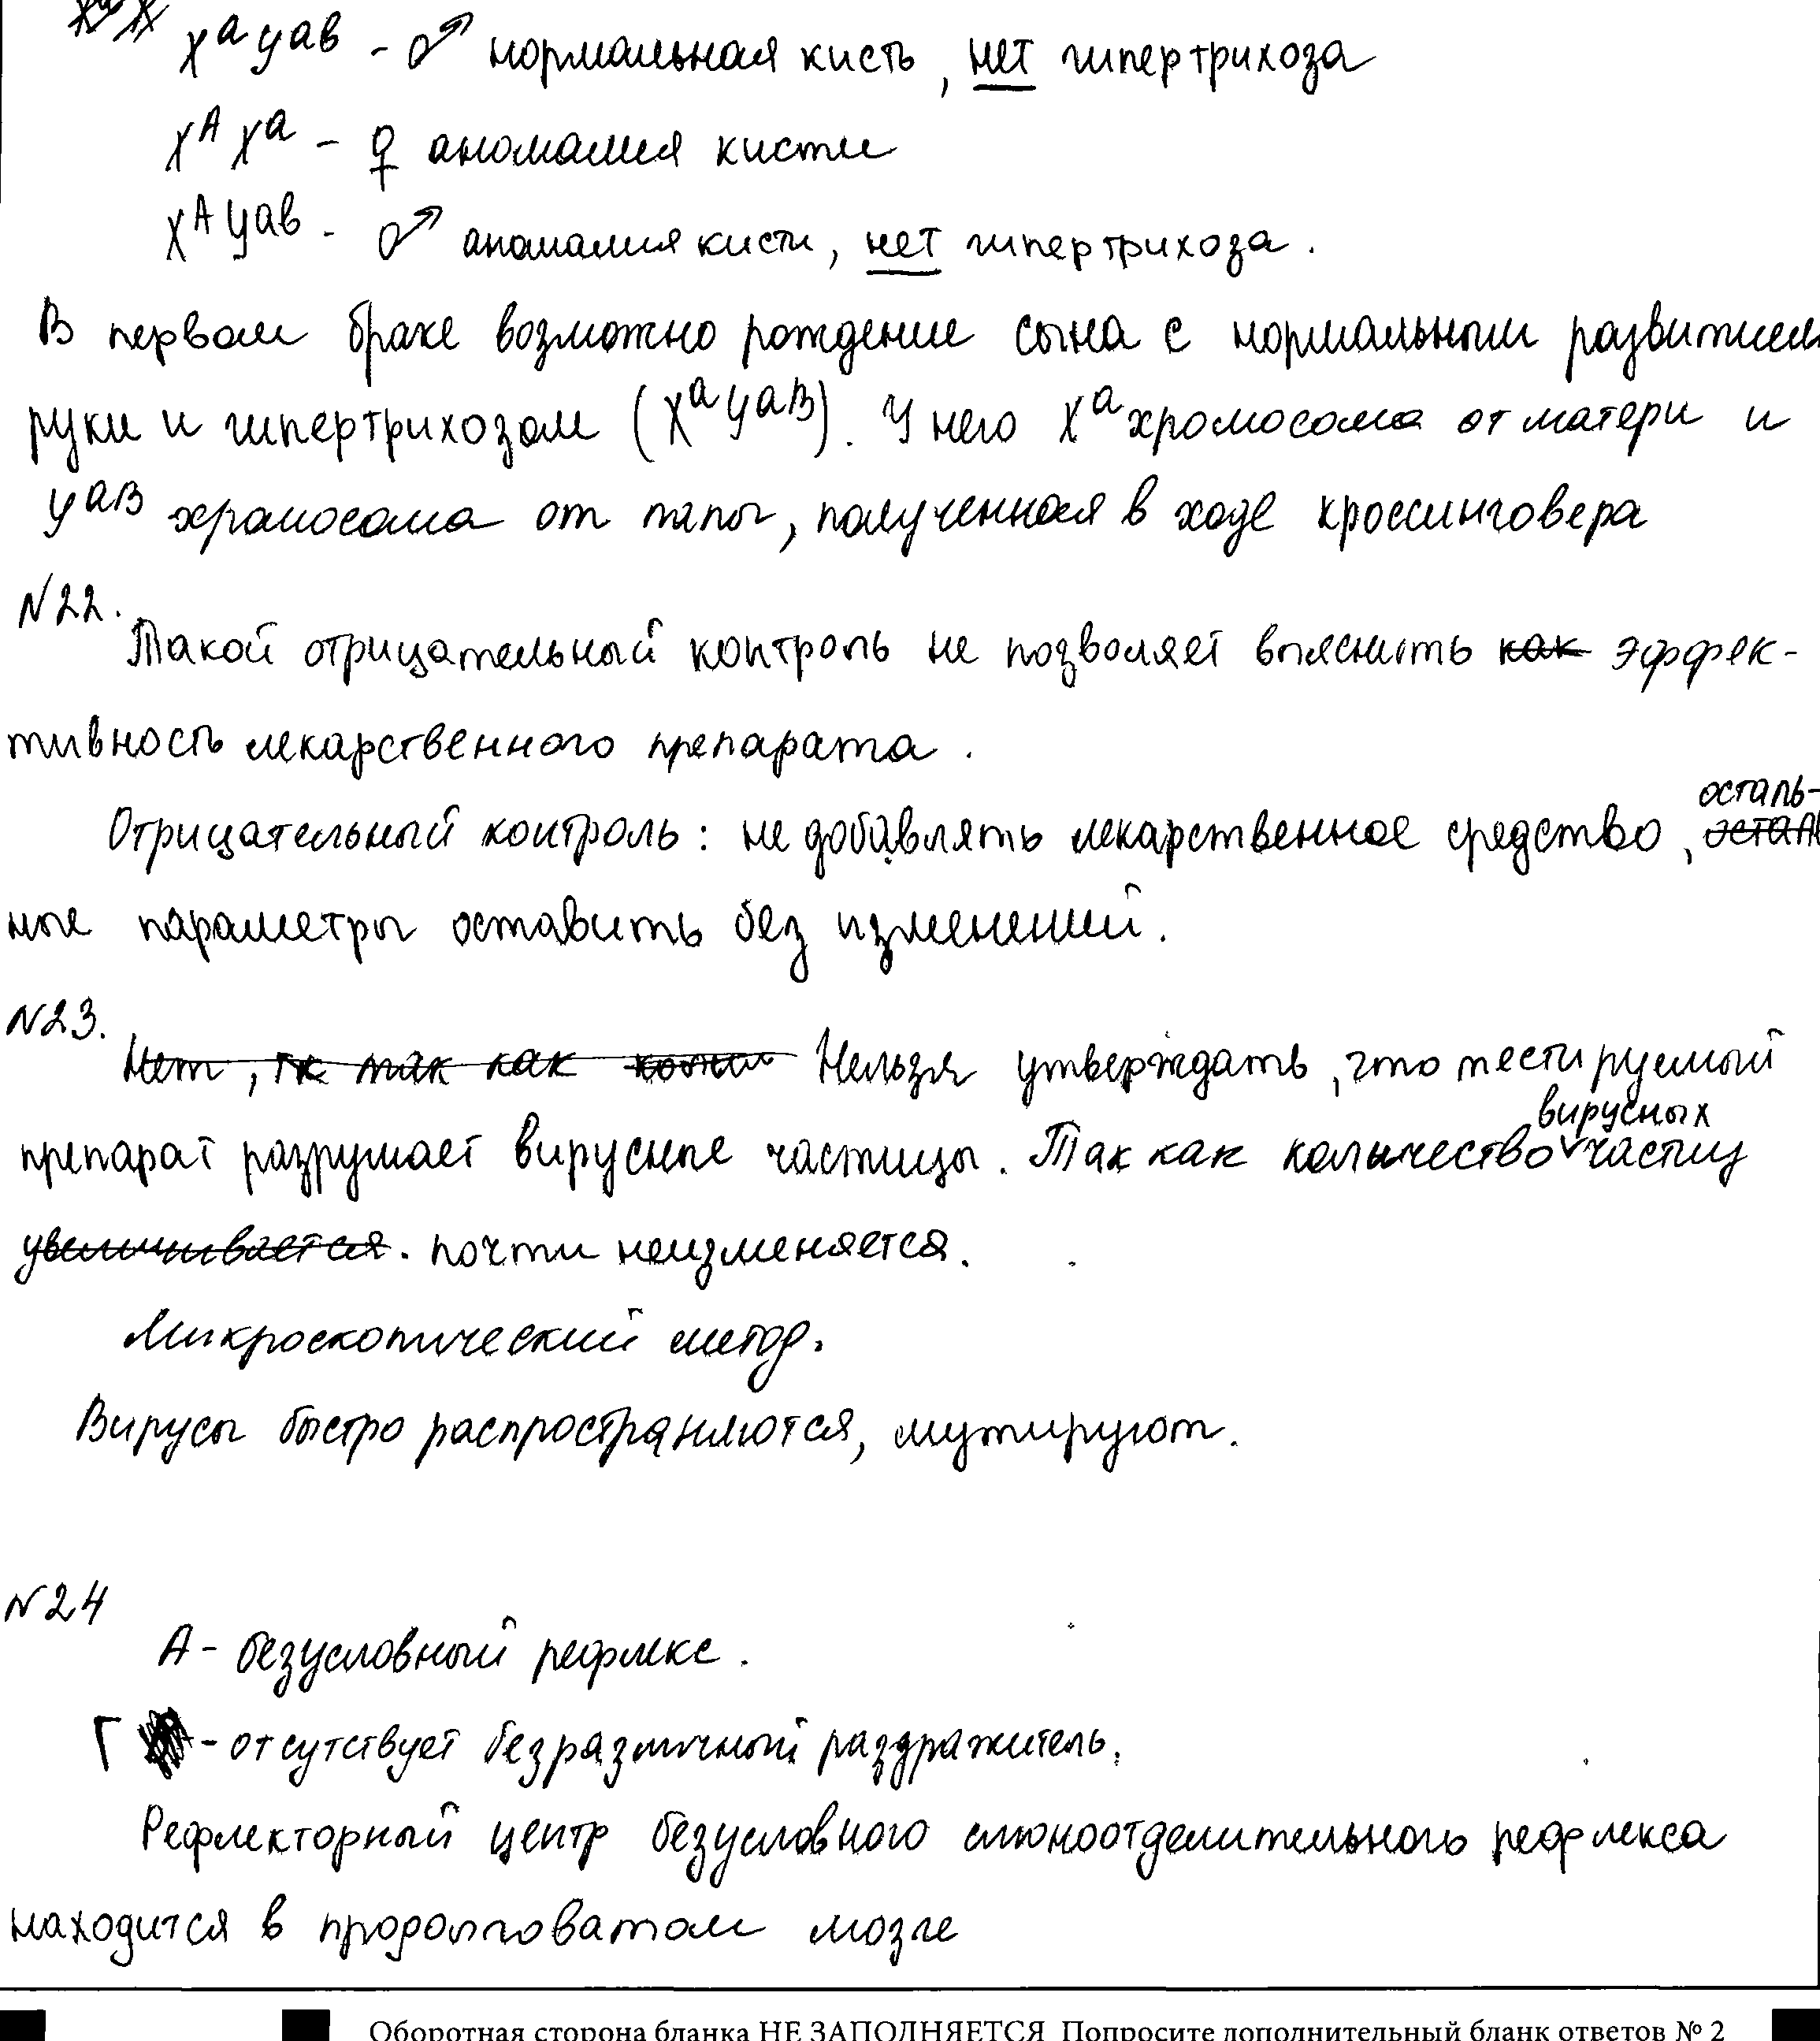 X^a y^ab - ♂ нормальная кисть, нет гипертрихоза
X^A X^a - ♀ аномалия кисти
X^A y^ab - ♂ аномалия кисти, нет гипертрихоза.
В первом браке возможно рождение сына с нормальным развитием
руки и гипертрихозом (X^a y^aB). У него X^a хромосома от матери и
y^aB хромосома от папы, полученная в ходе кроссинговера
N22.
Такой отрицательный контроль не позволяет выяснить как эффек-
тивность лекарственного препарата.
Отрицательный контроль: не добавлять лекарственное средство, осталь-
ные параметры оставить без изменений.
N23.
Нет, тк так как Нельзя утверждать, что тестируемый
препарат разрушает вирусные частицы. Так как количество вирусных частиц
увеличивается. почти неизменяется.
Микроскопический метод.
Вирусы быстро распространяются, мутируют.
N24
А - безусловный рефлекс.
Г - отсутствует безразличный раздражитель.
Рефлекторный центр безусловного слюноотделительного рефлекса
находится в продолговатом мозге
Оборотная сторона бланка НЕ ЗАПОЛНЯЕТСЯ Попросите дополнительный бланк ответов № 2